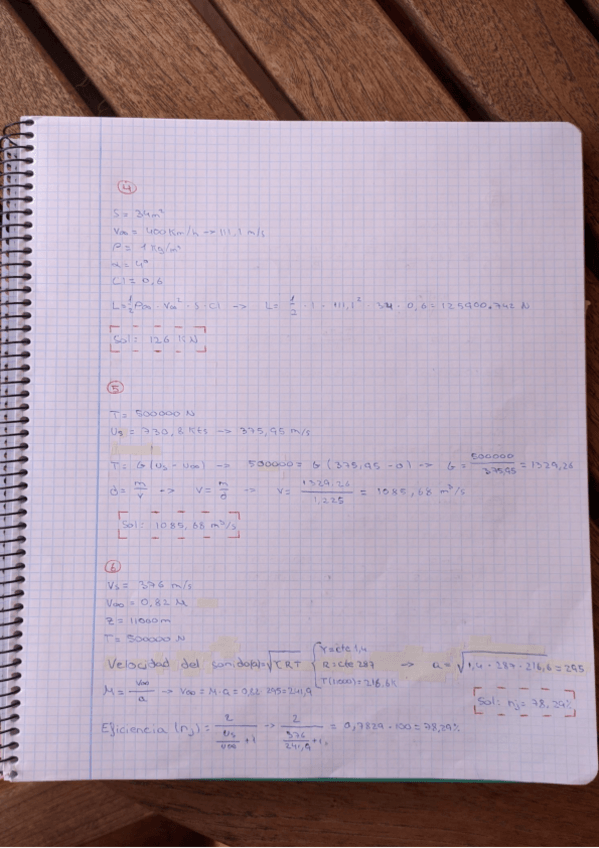 4
S = 34m²
V∞ = 400 Km/h -> 111,1 m/s
ρ = 1 Kg/m³
α = 4º
Cl = 0,6
L = 1/2 ρ∞ · V∞² · S · Cl -> L = 1/2 · 1 · 111,1² · 34 · 0,6 = 125900.742 N
Sol: 126 KN
5
T = 500000 N
Us = 730,8 Kts -> 375,95 m/s
T = G (Us - U∞) -> 500000 = G (375,95 - 0) -> G = 500000/375,95 = 1329,26
d = m/v -> V = m/d -> V = 1329,26/1.225 = 1085,68 m³/s
Sol: 1085,68 m³/s
6
Vs = 376 m/s
V∞ = 0,82 M
Z = 11000m
T = 500000 N
Velocidad del sonido(a) = √γRT { γ = cte 1,4 R = cte 287 T(11000) = 216,6K -> a = √1,4 · 287 · 216,6 = 295
M = V∞/a -> V∞ = M · a = 0,82 · 295 = 241,9
Sol: ηj = 78,29%
Eficiencia (ηj) = 2/(Us/U∞ + 1) -> 2/(376/241,9 + 1) = 0,7829 · 100 = 78,29%